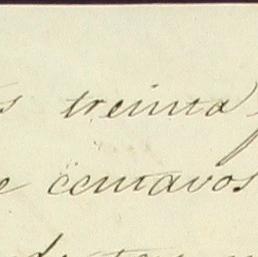 s treinta
e centavos